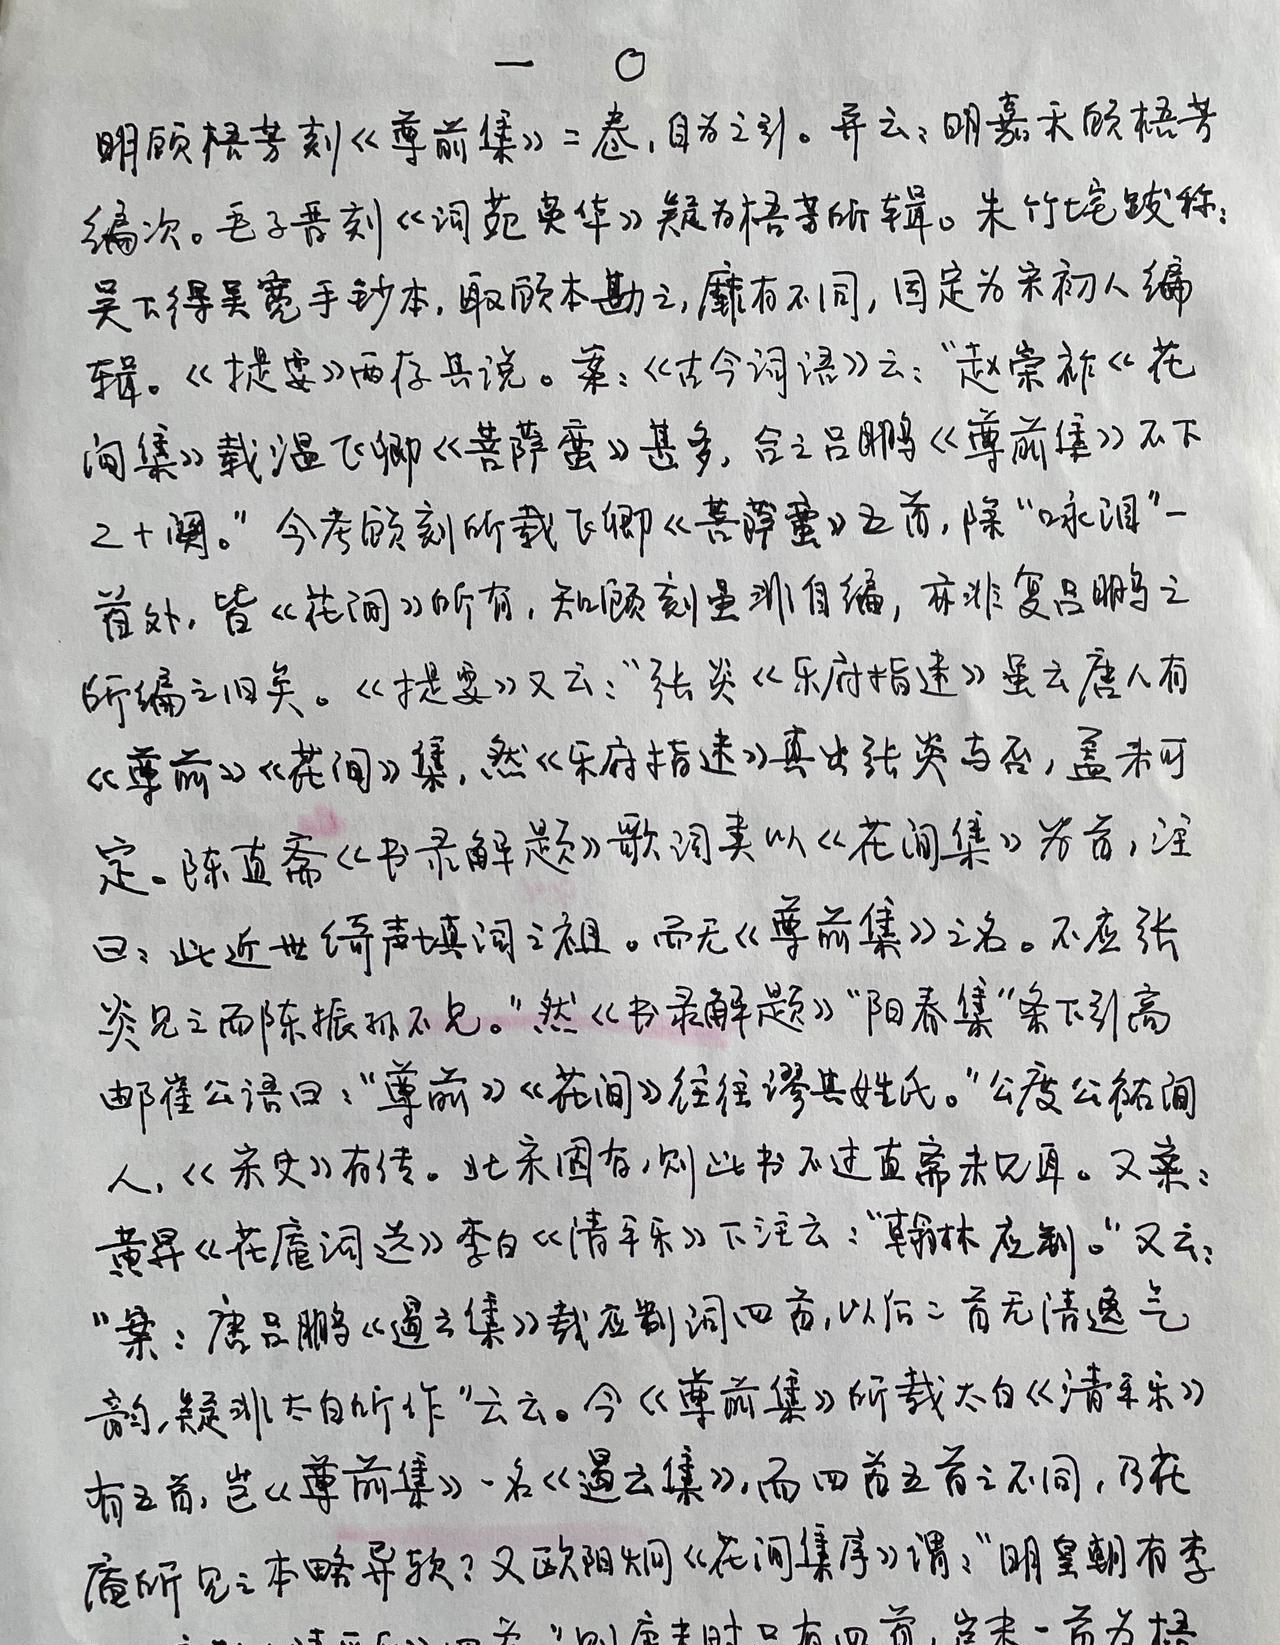 一〇
明顾梧芳刻《尊前集》二卷，自为之引。并云：明嘉禾顾梧芳
编次。毛子晋刻《词苑英华》疑为梧芳所辑。朱竹垞跋称：
吴下得吴宽手钞本，取顾本勘之，靡有不同，因定为宋初人编
辑。《提要》两存其说。案：《古今词语》云：“赵崇祚《花
间集》载温飞卿《菩萨蛮》甚多，合之吕鹏《尊前集》不下
二十阕。”今考顾刻所载飞卿《菩萨蛮》五首，除“咏泪”一
首外，皆《花间》所有，知顾刻虽非自编，亦非复吕鹏之
所编之旧矣。《提要》又云：“张炎《乐府指迷》虽云唐人有
《尊前》《花间》集，然《乐府指迷》真出张炎与否，盖未可
定。陈直斋《书录解题》歌词类以《花间集》为首，注
曰：此近世倚声填词之祖。而无《尊前集》之名。不应张
炎见之而陈振孙不见。”然《书录解题》“阳春集”条下引高
邮崔公语曰：“尊前》《花间》往往谬其姓氏。”公度公祐间
人，《宋史》有传。北宋固有，则此书不过直斋未见耳。又案：
黄昇《花庵词选》李白《清平乐》下注云：“翰林应制。”又云：
“案：唐吕鹏《遏云集》载应制词四首，以后二首无清逸气
韵，疑非太白所作”云云。今《尊前集》所载太白《清平乐》
有五首，岂《尊前集》一名《遏云集》，而四首五首之不同，乃花
庵所见之本略异欤？又欧阳炯《花间集序》谓：“明皇朝有李
四首”则唐末时只有四首，岂末一首为梧